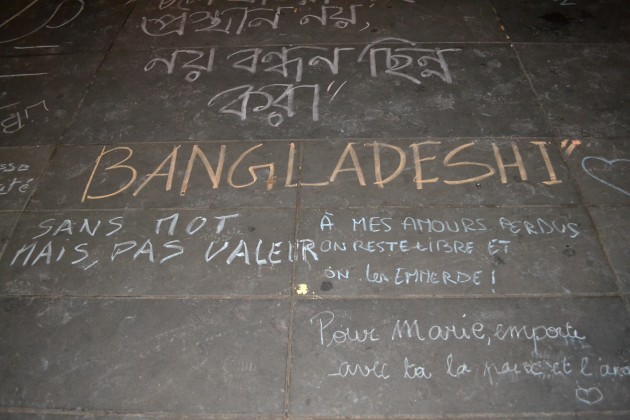 প্রস্থান নয়,
নয় বন্ধন ছিন্ন
করা"
BANGLADESHI"
SANS MOT
MAIS, PAS VALEIR
À MES AMOURS PERDUS
ON RESTE LIBRE ET
ON les EMMERDE!
Pour Marie, emporte
avec ta la paix et l'amo